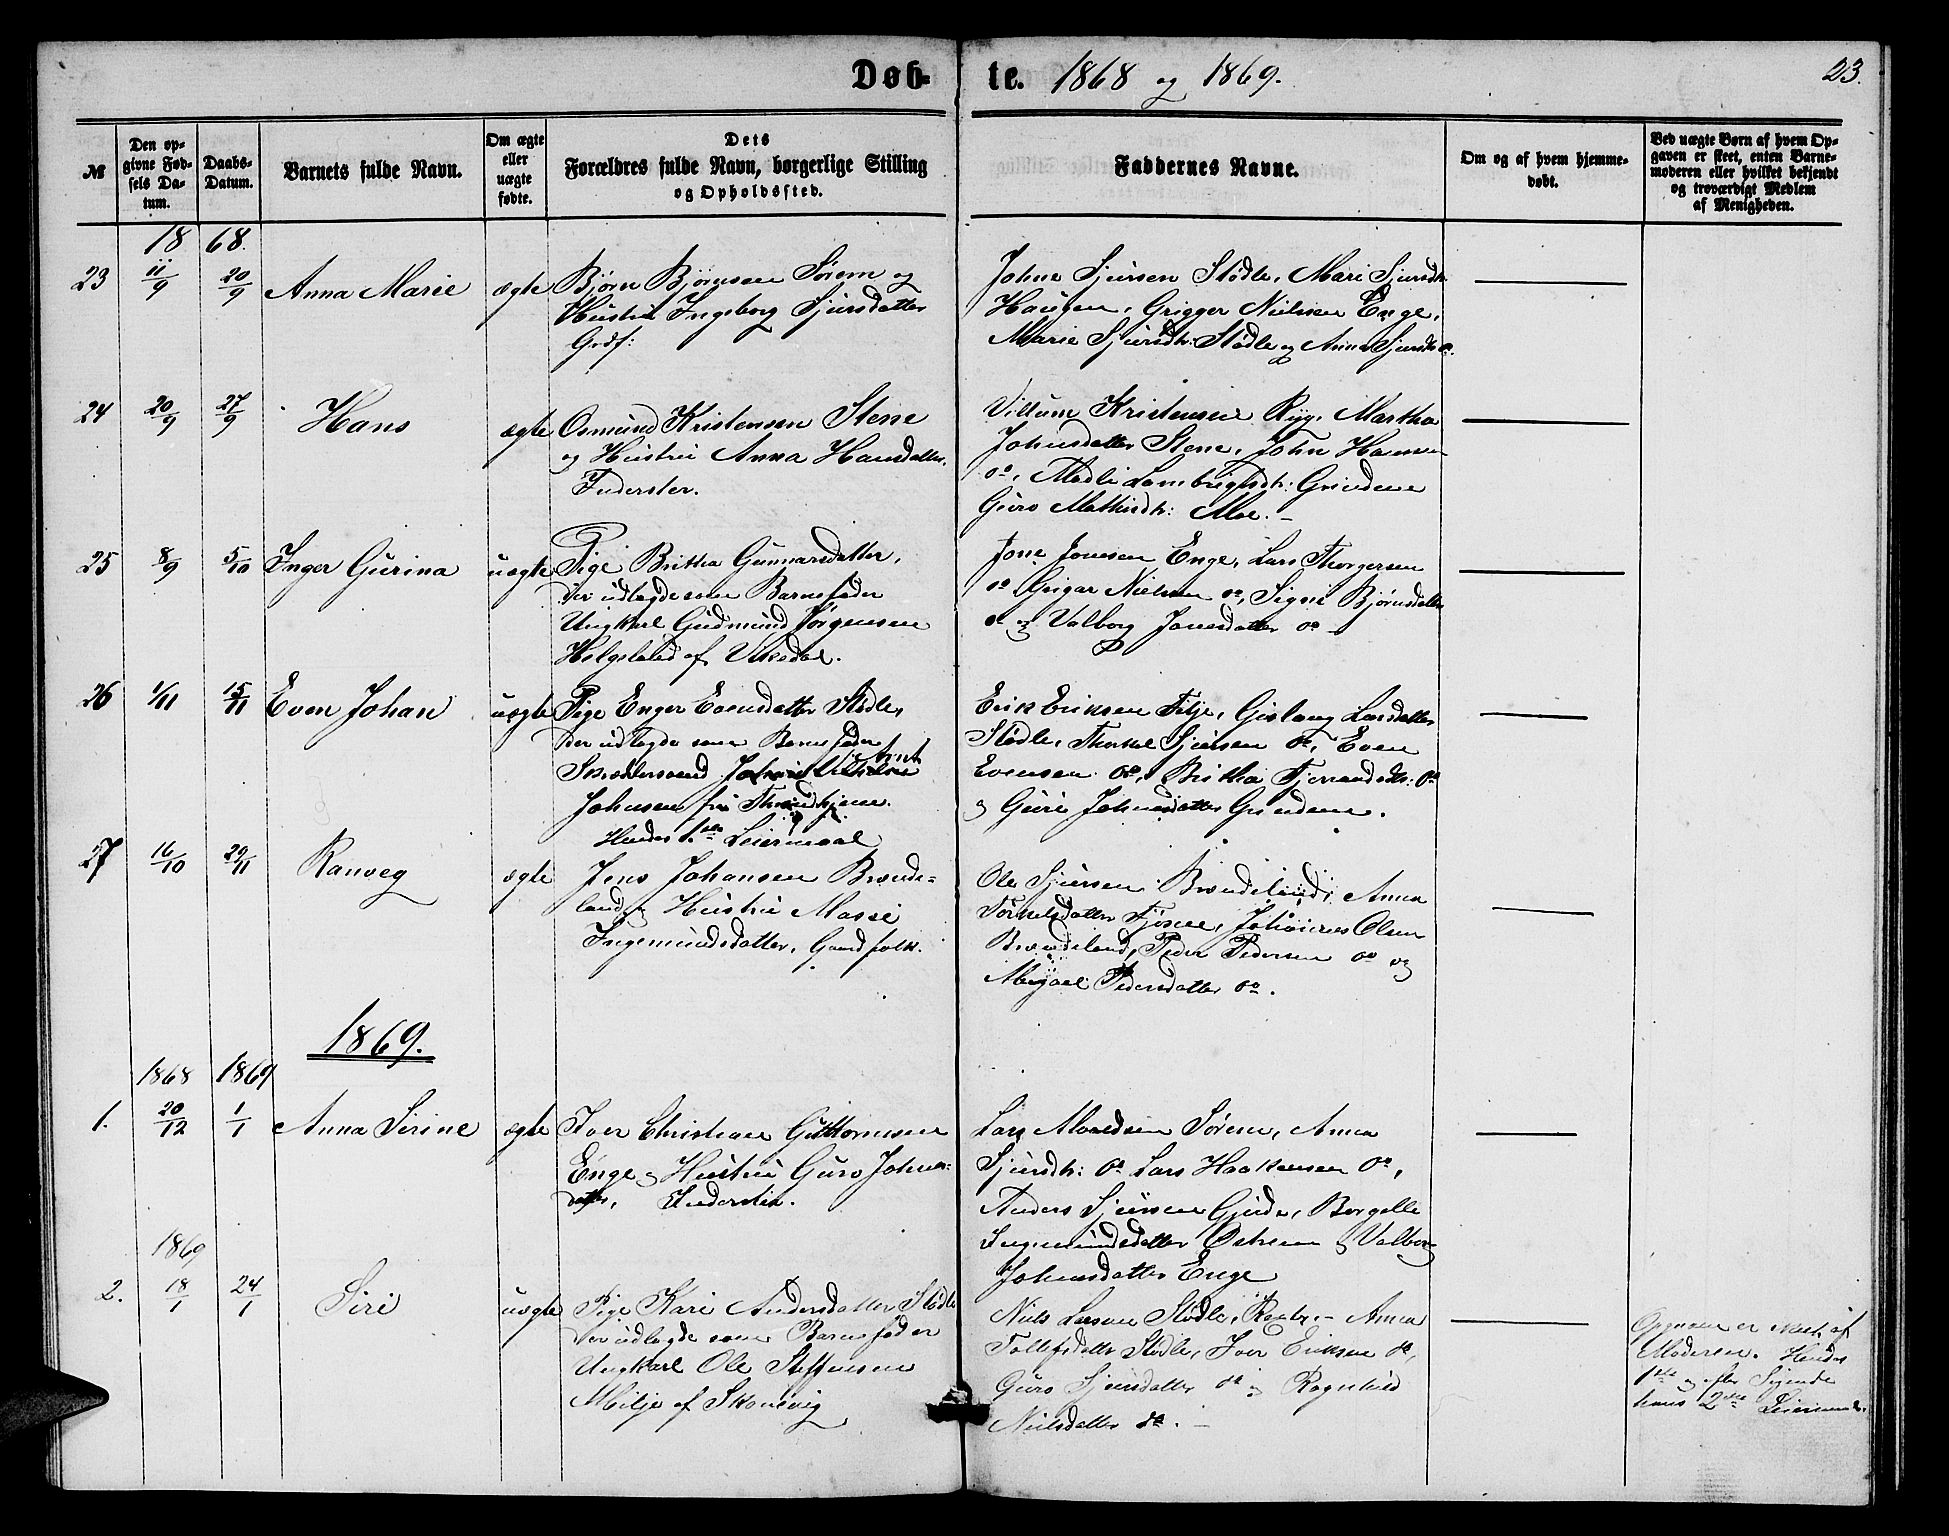 Døb-te. 1868 og 1869.
23.
№
Den op-
givne Fød-
sels Da-
tum.
Daabs-
Datum.
Barnets fulde Navn.
Om ægte
eller
uægte
fødte.
Dets
Forældres fulde Navn, borgerlige Stilling
og Opholdssted.
Faddernes Navne.
Om og af hvem hjemme-
døbt.
Ved uægte Børn af hvem Op-
gaven er skeet, enten Barne-
moderen eller hvilket bekjendt
og troværdigt Medlem
af Menigheden.
1868
23 11/9 20/9 Anna Marie ægte
Bjørn Bjørnsen Sørem og
Hustru Ingeborg Sjursdatter
Grdf:
Johne Sjursen Stødle, Mari Sjursdtr
Haugen, Grigger Nielsen Enge,
Marie Sjursdtr: Stødle og Anna Sjursdtr do.
24 20/9 27/9 Hans ægte
Osmund Kristensen Stene
og Hustru Anna Hansdatter,
Inderster.
Villum Kristensen Ryg, Martha
Johnsdatter Stene, John Hansen
do, Lambrigtsdtr: Grindene
Guro Mathisdtr: Moe.
25 8/9 5/10 Inger Gurina uægte
Pige Britha Gunnarsdatter,
der udlagde som Barnefader
Ungkarl Gudmund Jørgensen
Helgeland af Vikedal.
Jone Jonesen Enge, Lars Thorgersen
do Grigar Nielsen do, Signe Bjørnsdatter
do og Valborg Jonesdatter do
26 1/11 15/11 Even Johan uægte
Pige Enger Evensdatter Stødle,
der udlagde som Barnefader
Skræddersvend Johan
Johnsen fra Throndhjem.
Hendes 1ste Leiermaal
Erik Eriksen Fitje, Gislaug Larsdatter
Stødle, Thorkel Sjursen do, Even
Evensen do, Britha do
og Guri Johannsdatter Grindene.
27 16/10 29/11 Ranveg ægte
Jens Johansen Brænde-
land og Hustru Massi
Ingemundsdatter, Gaardfolk.
Ole Sjursen Brændeland, Anna
Tørkelsdatter Fjøsne, Johannes Olsen
Brændeland, Peder Pedersen do og
Abigael Pedersdatter do.
1869.
1868 1869
1. 20/12 1/1 Anna Serine ægte
Iver Christian Guttormsen
Enge og Hustru Guro Johns-
datter, Inderster.
Lars Sørem, Anna
Sjursdtr: do Lars Haakensen do,
Anders Sjursen Gjerde, Borgelle
Ingemundsdatter Østrem og Valborg
Johnsdatter Enge
1869
2. 18/1 24/1 Siri uægte
Pige Kari Andersdatter Stødle
der udlagde som Barnefader
Ungkarl Ole Steffensen
Milje af Skonevig
Niels Larsen Stødle, Anna
Tollefsdatter Stødle, Iver Eriksen do,
Guro Sjursdatter do og Ragnhild
Nielsdatter do.
Opgaven er skeet af
Moderen. Hendes
1ste og efter Sigende
hans 2det Leiermaal.